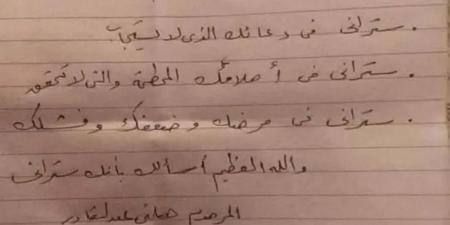 . ستراني في دعائك الذي لا يستجاب
. ستراني في أحلامك المحطمة والتي لا تتحقق
. ستراني في مرضك وضعفك وفشلك
والله العظيم أسألك بأنك ستراني
المرحوم هاني عبدالقادر